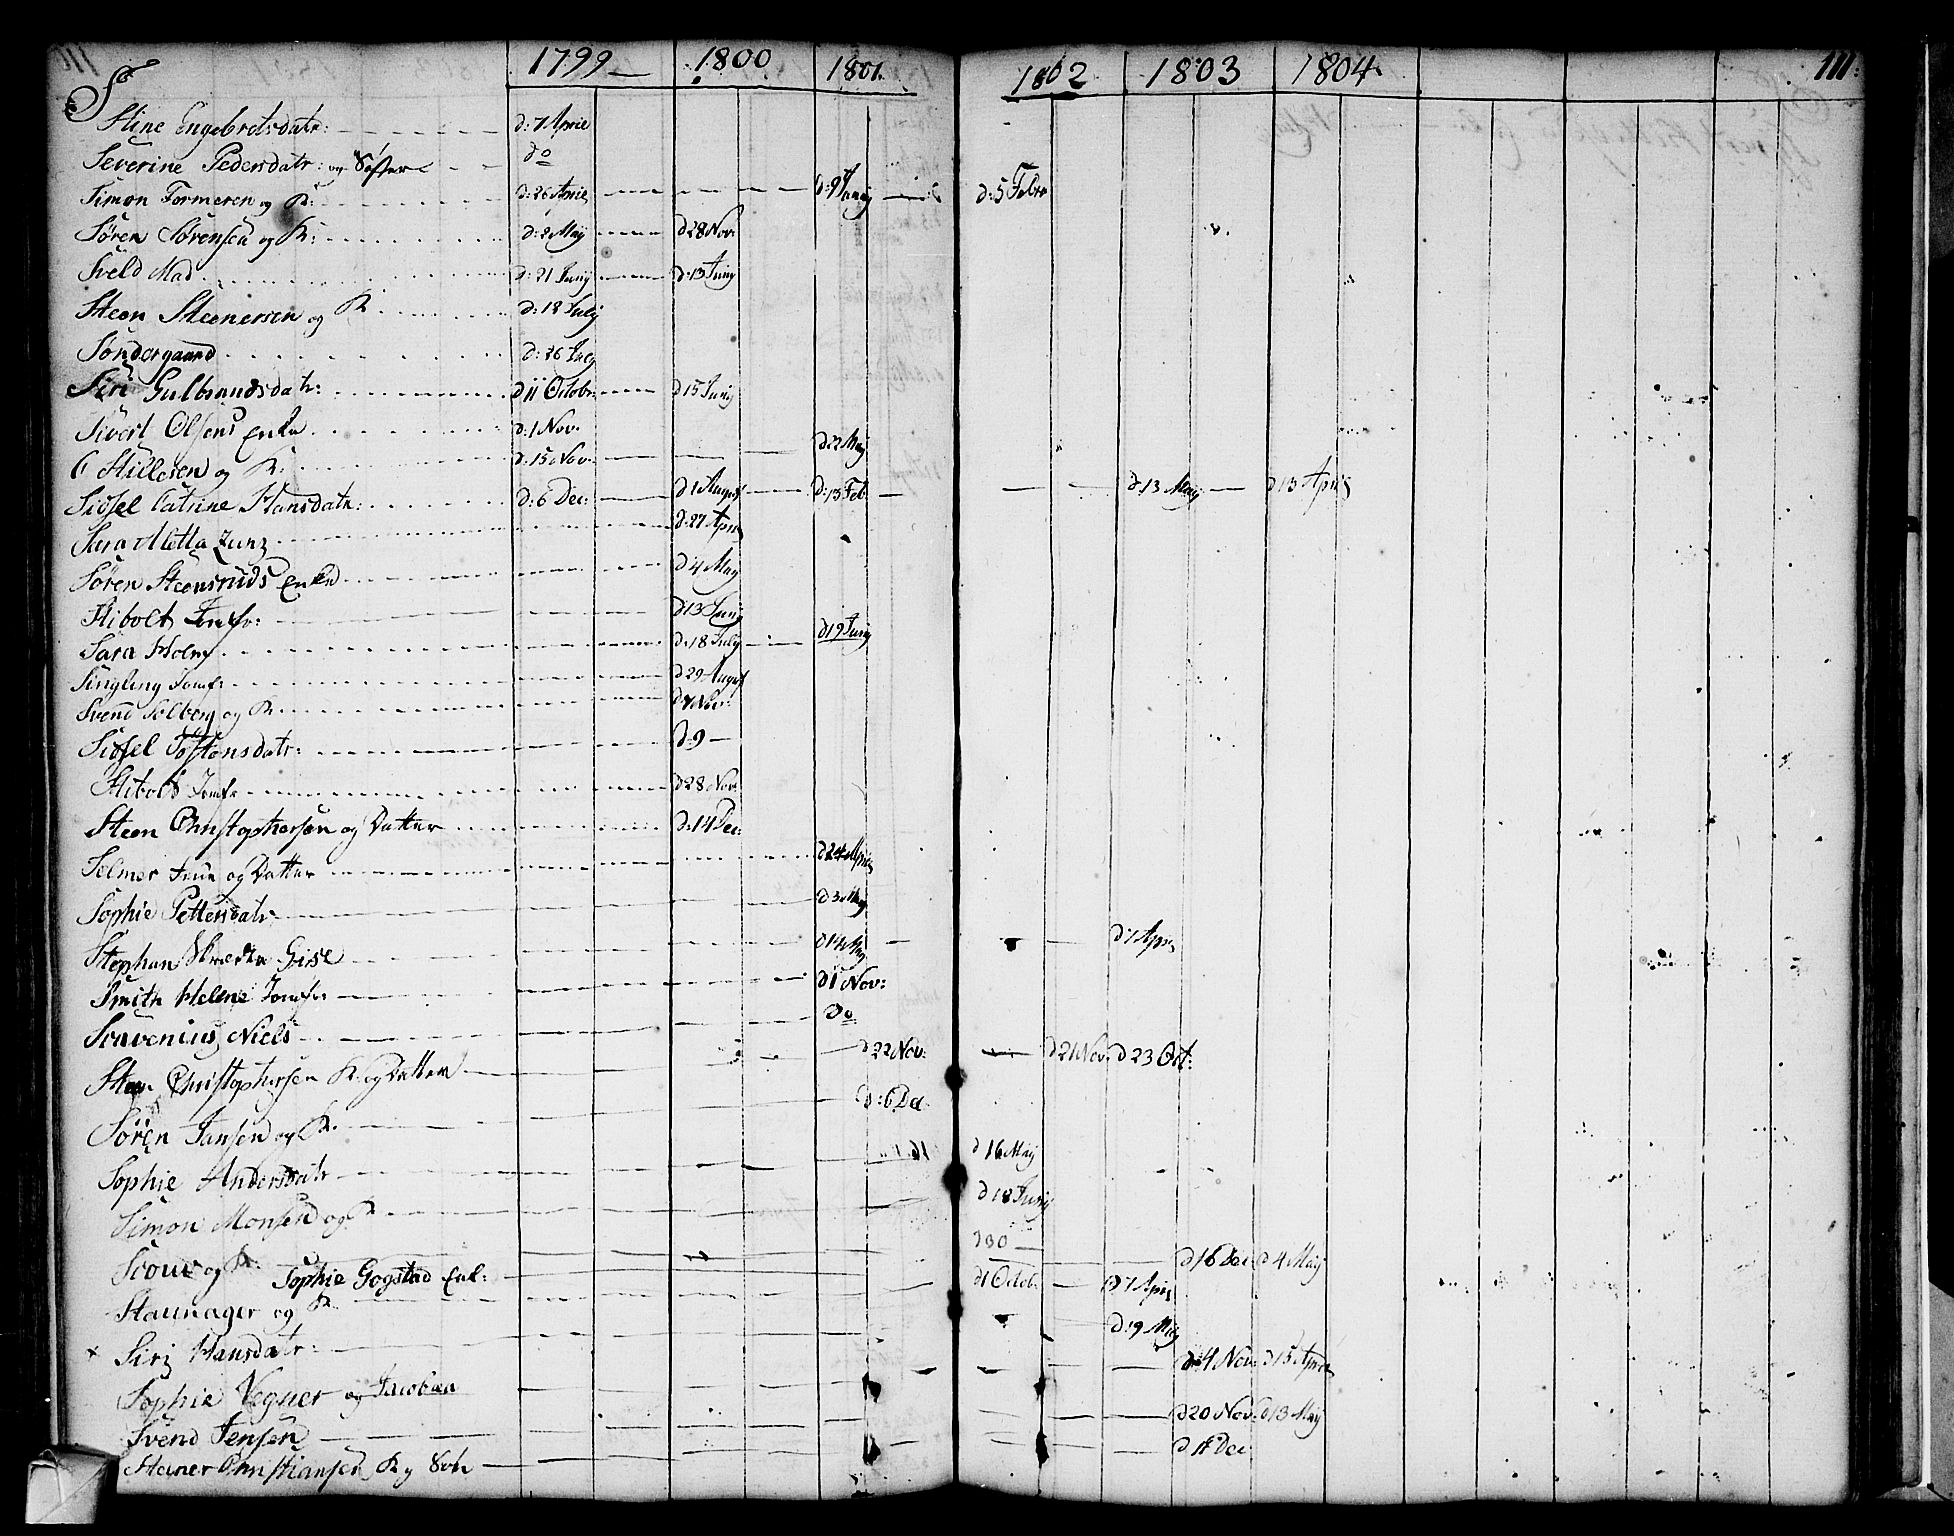 S 1799 1800 1801 1802 1803 1804 111:
Stine Engebretsdatr: d: 7 April
Severine Pedersdatr: og Søster do
Simon Formeren og K: d: 26 April d: 9 Junij d: 5 Febr
Søren Sørensen og K: d: 2 Maij d 28 Nov:
Sveld Mad. d: 21 Junij d: 13 Junij
Steen Steenersen og K. d: 18 Julij
Søndergaard d: 26 Julij
Siri Gulbrandsdatr: d 11 Octobr: d 15 Junij
Sivert Olsens Enke d: 1 Nov:
Stillesen og K: d: 15 Nov: d: 22 Maij
Sidsel Catrine Hansdatr: d: 6 Dec: d 1 August d: 13 Feb d: 13 Maij d 13 April
Sara Metta Lunz d: 27 April
Søren Steensruds Enke d 4 Maij
Stibolt Jomfr: d 13 Junij
Sara Holm d: 18 Julij d 19 Junij
Singling Jomf: d 29 August
Svend Solberg og K. d 7 Nov:
Sidsel Tostensdatr: d: 9
Stibolt Jomfr d 28 Nov:
Steen Christophersen og Datter d: 14 Dec:
Selmer Frue og Datter d 24 April
Sophie Pettersdatr d 3 Maij
Stephan Skræder Girse d 14 Maij d 7 Apri
Smith Helene Jomfr: d 1 Nov:
Scavenius Niels do
Steen Christophersen K. og Datter d 22 Nov: d 21 Nov: d 23 Oct:
Søren Jansen og K. d: 6 Dec
Sophie Andersdatr d 16 Maij
Simon Monsen og K d 18 Junij
Scouw og K: d 30 d 16 Dec d 4 Maij
Sophie Gogstad Enk: d 1 Octob: d 7 April
Staunager og K. d: 9 Maij
x Siri Hansdatr: d 4 Nov: d 15 April
Sophie Vegner og Jacobæa
Svend Jensen d 20 Nov: d 13 Maij
Stener Christiansen K og Søn d 11 Dec